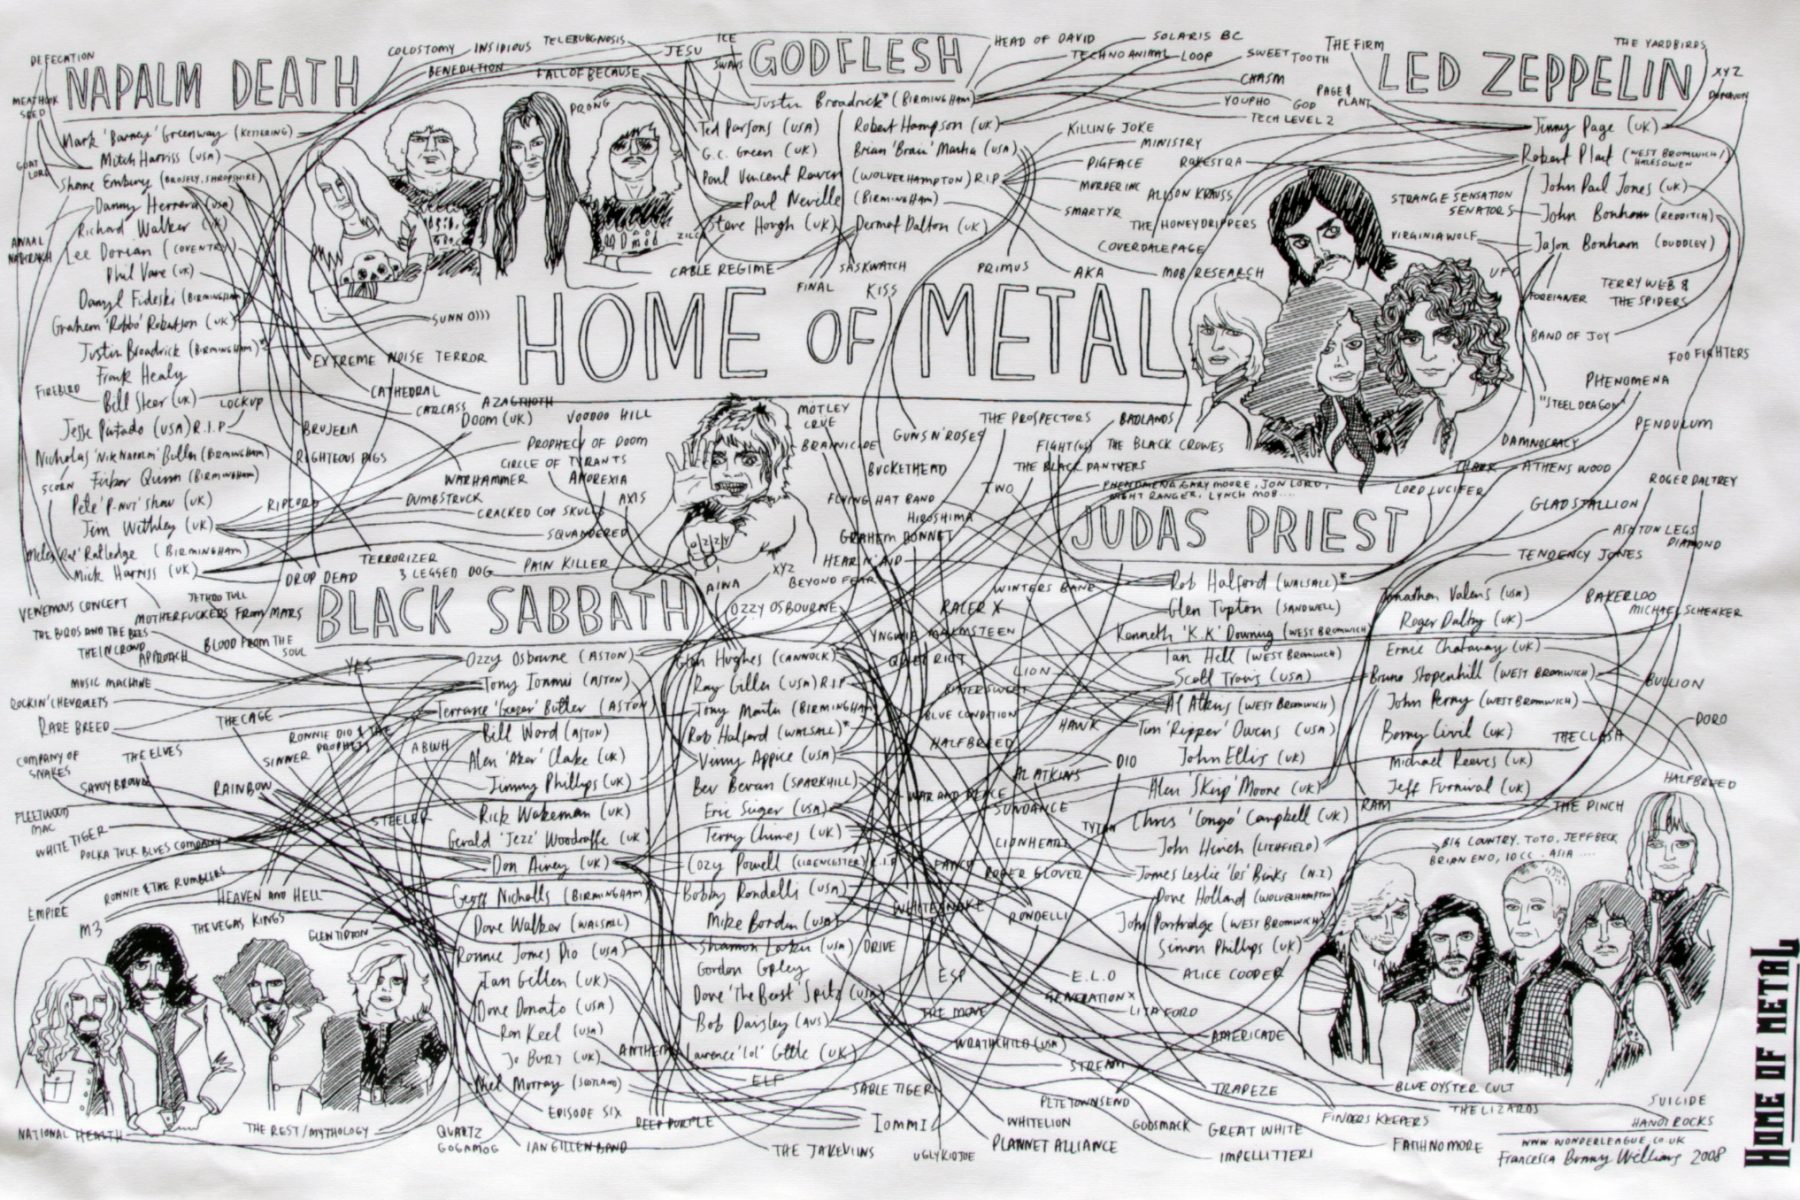 DEFECATION
NAPALM DEATH
COLOSTOMY
INSIDIOUS
BENEDICTION
FALL OF BECAUSE
JESU
ICE
SWANS
GODFLESH
HEAD OF DAVID
SOLARIS BC
TECHNO ANIMAL
LOOP
SWEET TOOTH
THE FIRM
THE YARDBIRDS
LED ZEPPELIN
XYZ
CHASM
YOUPHO
GOD
TECH LEVEL 2
PAGE & PLANT
PRONG
MEATHOOK SEED
Mark 'Barney' Greenway (KETTERING)
Mitch Harriss (USA)
Shane Embury (BROSELY, SHROPSHIRE)
Danny Herrera (USA)
Richard Walker (UK)
Lee Dorrian (COVENTRY)
Phil Vane (UK)
Darryl Fideski (BIRMINGHAM)
Graham 'Robbo' Robertson (UK)
Justin Broadrick (BIRMINGHAM)*
Frank Healy
Bill Steer (UK)
Jesse Pintado (USA) R.I.P
Nicholas 'Nik Napalm' Bullen (BIRMINGHAM)
Finbar Quinn (BIRMINGHAM)
Pete 'P-Nut' Shaw (UK)
Jim Withley (UK)
Miles 'Rat' Ratledge (BIRMINGHAM)
Mick Harriss (UK)
Justin Broadrick* (BIRMINGHAM)
Ted Parsons (USA)
Robert Hampson (UK)
G.C. Green (UK)
Paul Vincent Raven (WOLVERHAMPTON) R.I.P
Paul Neville (BIRMINGHAM)
Steve Hough (UK)
Dermot Dalton (UK)
KILLING JOKE
MINISTRY
PIGFACE
RAKESTRA
MURDER INC
ALISON KRAUSS
SMARTYR
THE HONEYDRIPPERS
COVERDALE PAGE
CABLE REGIME
FINAL
SASKWATCH
KISS
PRIMUS
AKA
MOB RESEARCH
Jimmy Page (UK)
Robert Plant (WEST BROMWICH/ HALESOWEN
John Paul Jones (UK)
John Bonham (REDDITCH)
Jason Bonham (DUDLEY)
STRANGE SENSATION
SENATORS
VIRGINIA WOLF
UFO
FOREIGNER
TERRY WEB & THE SPIDERS
BAND OF JOY
FOO FIGHTERS
PHENOMENA
"STEEL DRAGON"
PENDULUM
DAMNOCRACY
ATHENS WOOD
ROGER DALTREY
LORD LUCIFER
GLAD STALLION
ASHTON LEGS
DIAMOND
TENDENCY JONES
GOAT LORD
ANAAL NATHRAKH
SUNN O)))
HOME OF METAL
EXTREME NOISE TERROR
FIREBIRD
LOCKUP
CATHEDRAL
CARCASS
DOOM (UK)
VOODOO HILL
BRUJERIA
RIGHTEOUS PIGS
PROPHECY OF DOOM
CIRCLE OF TYRANTS
WARHAMMER
ANOREXIA
SCORN
RIPCORD
DUMBSTRUCK
AXIS
CRACKED COP SKULLS
SQUANDERED
TERRORIZER
3 LEGGED DOG
PAIN KILLER
DROP DEAD
OZZY
AINA
XYZ
BEYOND FEAR
MOTLEY CRUE
BRAINICIDE
GUNS N' ROSES
BUCKETHEAD
FLYING HAT BAND
HIROSHIMA
GRAHAM BONNET
HEAR N' AID
THE PROSPECTORS
BADLANDS
FIGHT (US)
THE BLACK CROWES
THE BLACK PANTHERS
TWO
PHENOMENA, GARY MOORE, JON LORD,
NIGHT RANGER, LYNCH MOB....
JUDAS PRIEST
Rob Halford (WALSALL)*
Glen Tipton (SANDWELL)
Kenneth 'K.K' Downing (WEST BROMWICH
Ian Hill (WEST BROMWICH)
Scott Travis (USA)
Al Atkins (WEST BROMWICH)
Tim 'Ripper' Owens (USA)
John Ellis (UK)
Alan 'Skip' Moore (UK)
Chris 'Congo' Campbell (UK)
John Hinch (LICHFIELD)
James Leslie 'Les' Binks (N.I)
Dave Holland (WOLVERHAMPTON)
John Partridge (WEST BROMWICH)
Simon Phillips (UK)
Jonathan Valens (USA)
Roger Daltry (UK)
Ernie Chataway (UK)
Bruno Stapenhill (WEST BROMWICH)
John Perry (WEST BROMWICH)
Barry Civil (UK)
Michael Reeves (UK)
Jeff Furnival (UK)
BAKERLOO
MICHAEL SCHENKER
BULLION
DORO
THE CLASH
HALFBREED
THE PINCH
RAM
BIG COUNTRY, TOTO, JEFF BECK,
BRIAN ENO, 10CC, ASIA ....
VENEMOUS CONCEPT
JETHRO TULL
MOTHERFUCKERS FROM MARS
THE BIRDS AND THE BEES
THE IN CROWD
APPROACH
BLOOD FROM THE SOUL
BLACK SABBATH
YES
MUSIC MACHINE
ROCKIN' CHEVROLETS
RARE BREED
THE CAGE
RONNIE DIO & THE PROPHETS
SINNER
ABWH
COMPANY OF SNAKES
THE ELVES
SAVOY BROWN
RAINBOW
STEELER
FLEETWOOD MAC
WHITE TIGER
POLKA TULK BLUES COMPANY
RONNIE & THE RUMBLERS
HEAVEN AND HELL
EMPIRE
M3
THE VEGAS KINGS
GLEN TIPTON
Ozzy Osbourne (ASTON)
Tony Iommi (ASTON)
Terrance 'Geezer' Butler (ASTON
Bill Ward (ASTON)
Jimmy Phillips (UK)
Rick Wakeman (UK)
Gerald 'Jezz' Woodroffe (UK)
Don Airey (UK)
Geoff Nicholls (BIRMINGHAM)
Dave Walker (WALSALL)
Ronnie James Dio (USA)
Ian Gillen (UK)
Dave Donato (USA)
Ron Keel (USA)
Jo Burt (UK)
Neil Murray (SCOTLAND)
OZZY OSBOURNE
Glen Hughes (CANNOCK)
Ray Gillen (USA) R.I.P
Tony Martin (BIRMINGHAM)
Rob Halford (WALSALL)*
Vinny Appice (USA)
Bev Bevan (SPARKHILL)
Eric Singer (USA)
Terry Chimes (UK)
Cozy Powell (CIRENCESTER) R.I.P
Bobby Rondelli (USA)
Mike Bordin (USA)
Gordon Copley
Dave 'The Beast' Spitz (USA)
Bob Daisley (AUS)
Laurence 'Lol' Cottle (UK)
WINTERS BAND
RACER X
YNGWIE MALMSTEEN
QUIET RIOT
LION
BLUE CONDITION
HAWK
HALFBREED
AL ATKINS
DIO
WAR AND PEACE
SUNDANCE
TYTAN
LIONHEART
ROGER GLOVER
WHITESNAKE
RONDELLI
DRIVE
ESP
E.L.O
ALICE COOPER
GENERATION X
LITA FORD
THE MOVE
WRATHCHILD (USA)
AMERICADE
STREAM
ANTHEM
ELF
SABLE TIGER
TRAPEZE
BLUE OYSTER CULT
PETE TOWNSEND
IOMMI
WHITELION
PLANNET ALLIANCE
GODSMACK
GREAT WHITE
IMPELLITTERI
FINDERS KEEPERS
THE LIZARDS
FAITH NO MORE
SUICIDE
HANOI ROCKS
NATIONAL HEALTH
THE REST/MYTHOLOGY
QUARTZ
GOGMAGOG
EPISODE SIX
IAN GILLEN BAND
DEEP PURPLE
THE JAKEVILNS
UGLY KID JOE
WWW.WONDERLEAGUE.CO.UK
Francesca Bonny Williams 2008
HOME OF METAL